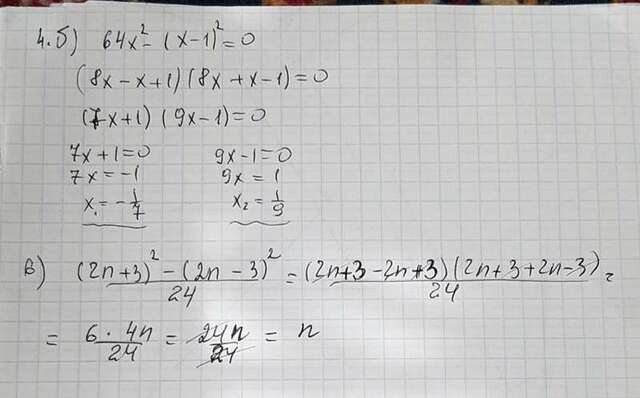 4.б) 64x² - (x-1)² = 0
(8x-x+1)(8x+x-1)=0
(7x+1)(9x-1)=0
7x+1=0 9x-1=0
7x=-1 9x=1
x₁=-1/7 x₂=1/9
в) (2n+3)²-(2n-3)²/24=(2n+3-2n+3)(2n+3+2n-3)/24=
= 6·4n/24 = 24n/24 = n